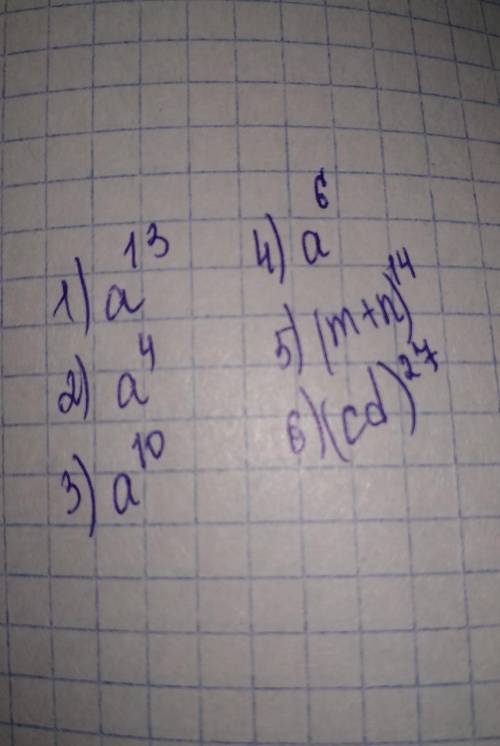 1) a¹³
2) a⁴
3) a¹⁰
4) a⁶
5) (m+n)¹⁴
6) (cd)²⁷